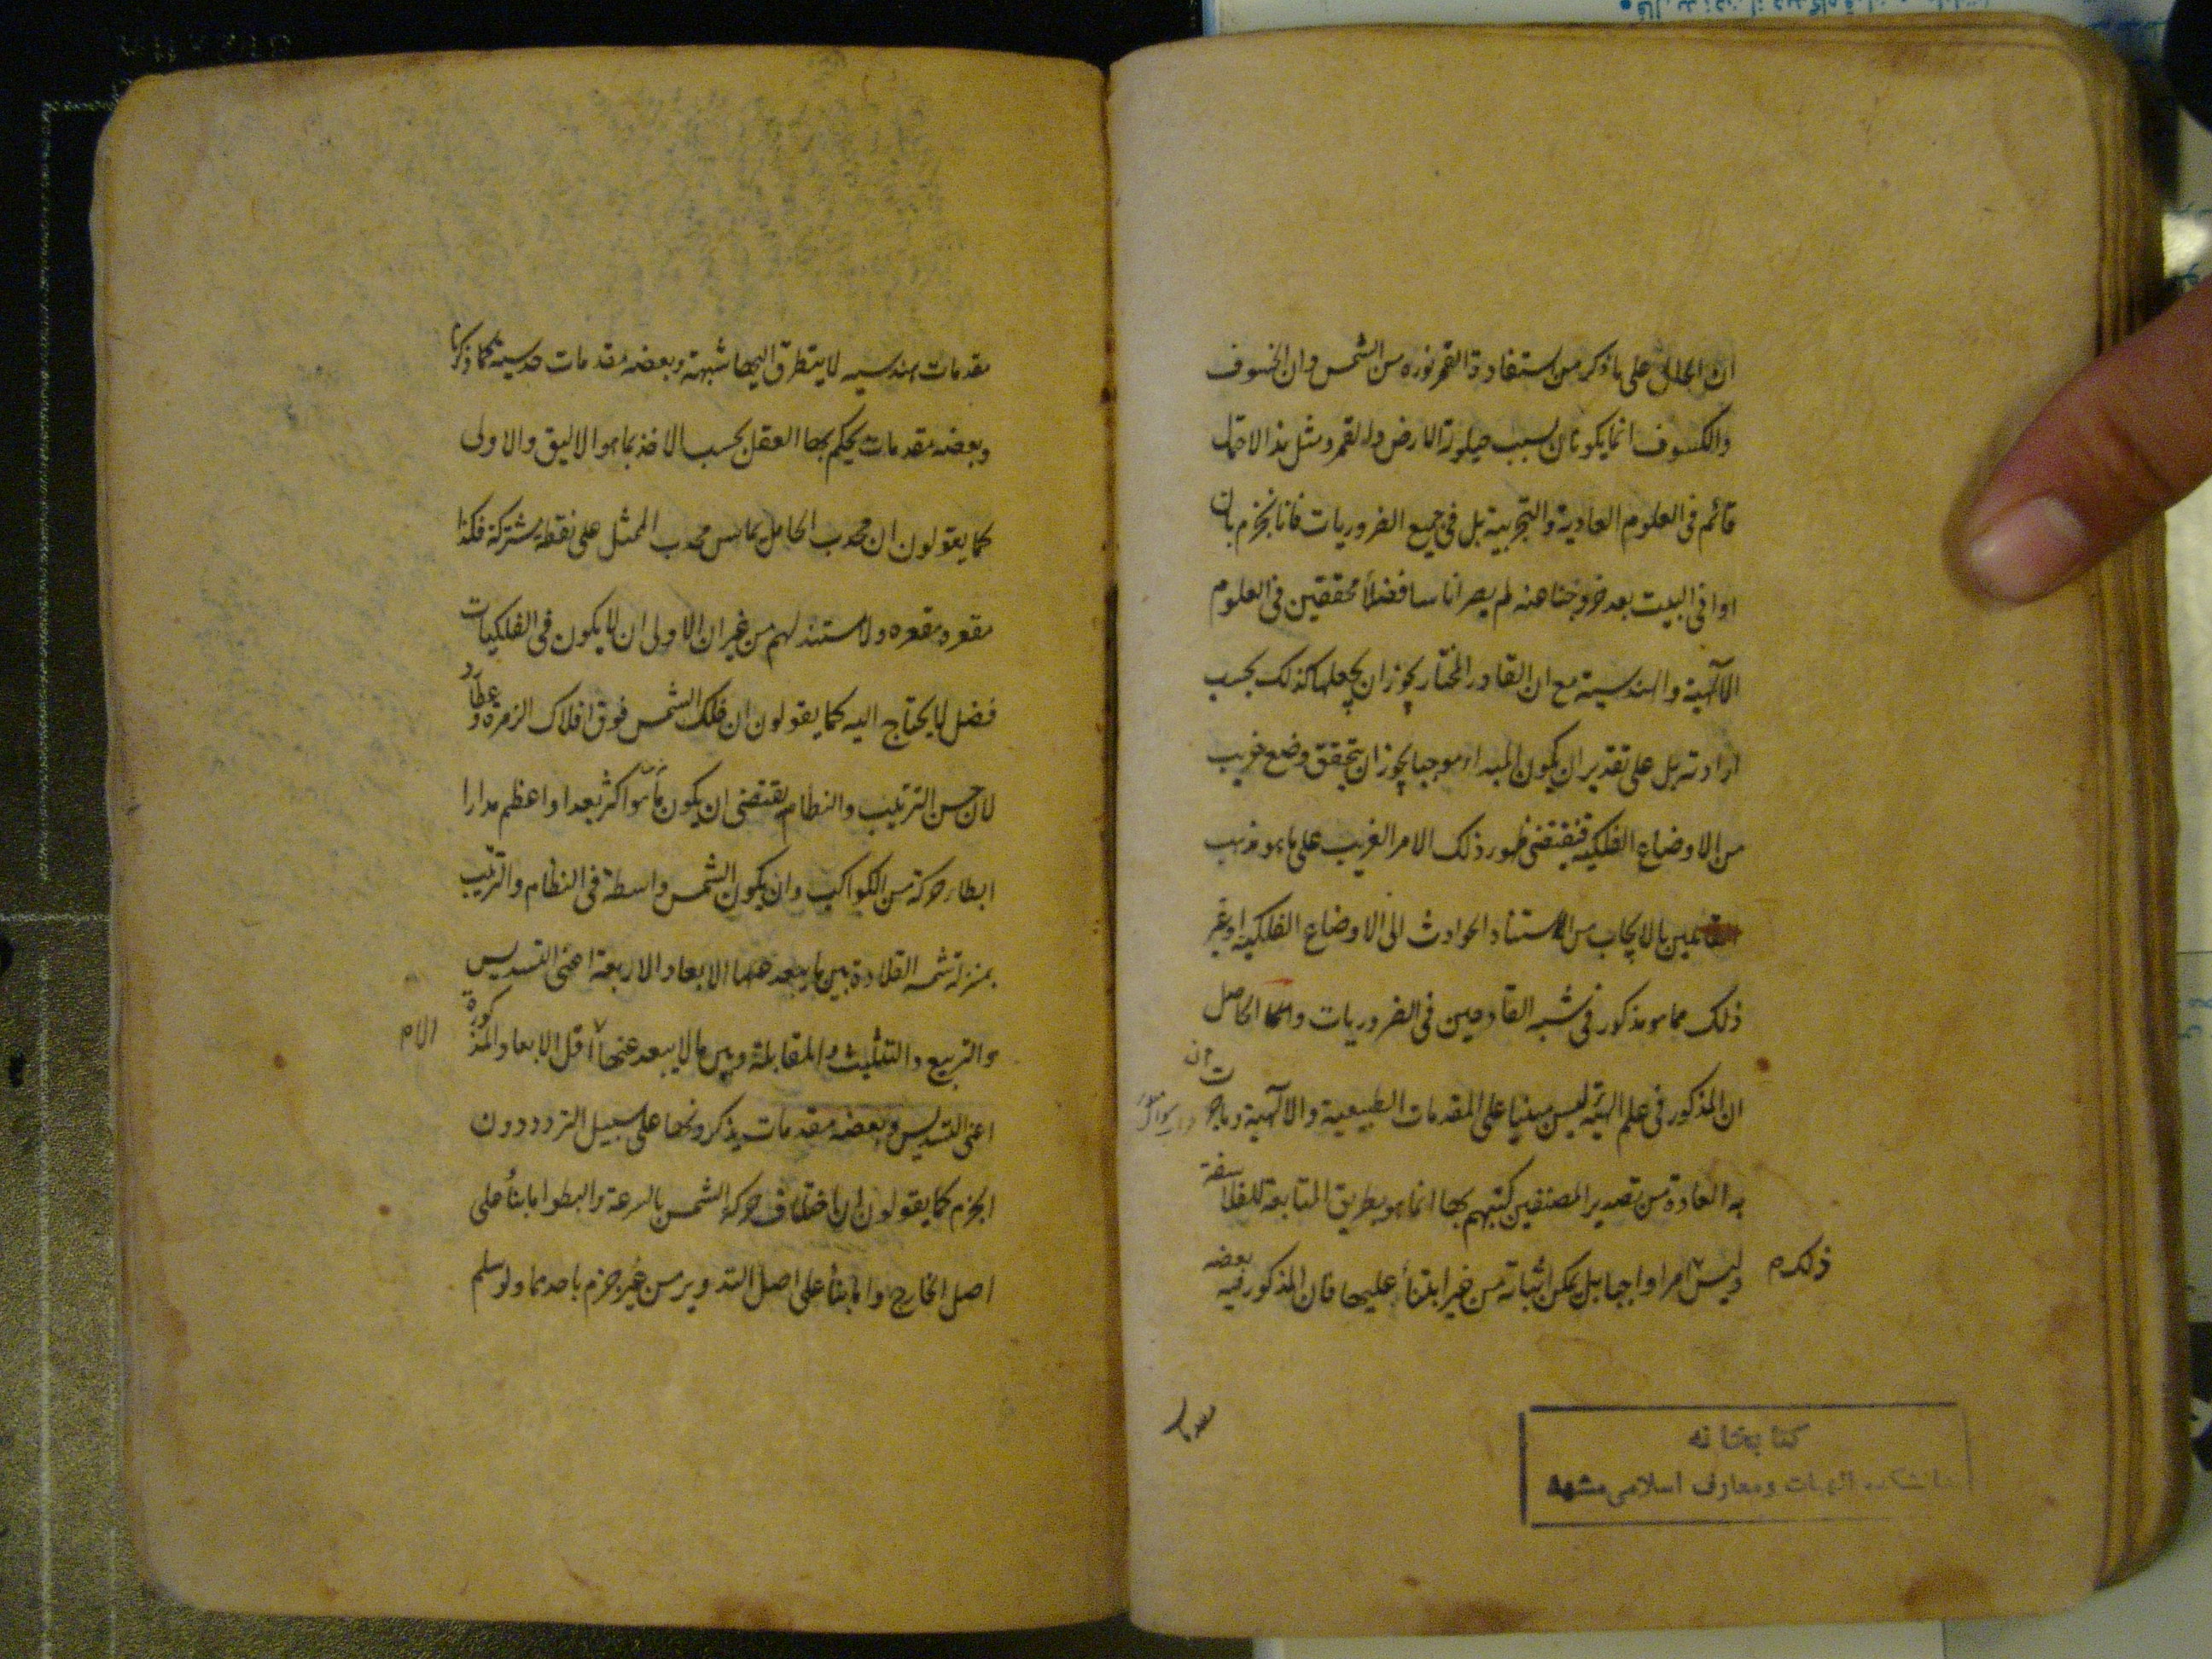 ان الحال على ما ذكر من استفادة القمر نوره من الشمس وان الخسوف
والكسوف انما يكونان بسبب حيلولة الارض والقمر ومثل هذا الاحتمال
قائم فى العلوم العادية والتجربية بل فى جميع الضروريات فانا نجزم بان
اوانى البيت بعد خروجنا عنه لم يصر اناسا فضلاً محققين فى العلوم
الآلهية والهندسية مع ان القادر المختار يجوز ان يجعلها كذلك بحسب
ارادته بل على تقدير ان يكون المبداء موجبا يجوز ان يتحقق وضع غريب
من الاوضاع الفلكية فيقتضى ظهور ذلك الامر الغريب على ما هو مذهب
القائلين بالايجاب من استناد الحوادث الى الاوضاع الفلكية او غير
ذلك مما هو مذكور فى شبه القادحين فى الضروريات والحاصل
ان المذكور فى علم الهيئة ليس مبنيا على المقدمات الطبيعية والآلهية وما جرت
به العادة من تصدير المصنفين كتبهم بها انما هو بطريق المتابعة للفلاسفة
وليس امرا واجبا بل يمكن اثباته من غير ابتناء عليها فان المذكور فيه بعضه
ذلك م
كتابخانه
دانشكده الهيات ومعارف اسلامى مشهد
مقدمات هندسيه لا يتطرق اليها شبهة وبعضه مقدمات حدسية كما ذكرنا
وبعضه مقدمات يحكم بها العقل بحسب الاخذ بما هو الاليق والاولى
كما يقولون ان محدب الحامل يماس محدب الممثل على نقطة مشتركة فكذا
مقعره مقعره ولا مستند لهم من غير ان الاولى ان لا يكون فى الفلكيات
فضل لا يحتاج اليه كما يقولون ان فلك الشمس فوق افلاك الزهرة وعطارد
لان حسن الترتيب والنظام يقتضى ان يكون ما هو اكثر بعدا واعظم مدارا
ابطاء حركة من الكواكب وان يكون الشمس واسطة فى النظام والترتيب
بمنزلة شمسة القلادة بين ما يبعد عنها الابعاد الاربعة اعنى التسديس
والتربيع والتثليث والمقابلة وبين ما لا يبعد عنها اقل الابعاد المذكورة
اعنى التسديس وبعضه مقدمات يذكرونها على سبيل التردد دون
الجزم كما يقولون ان اختلاف حركة الشمس بالسرعة والبطؤ اما بناءً على
اصل الخارج واما بناءً على اصل التدوير من غير جزم باحدهما ولو سلم